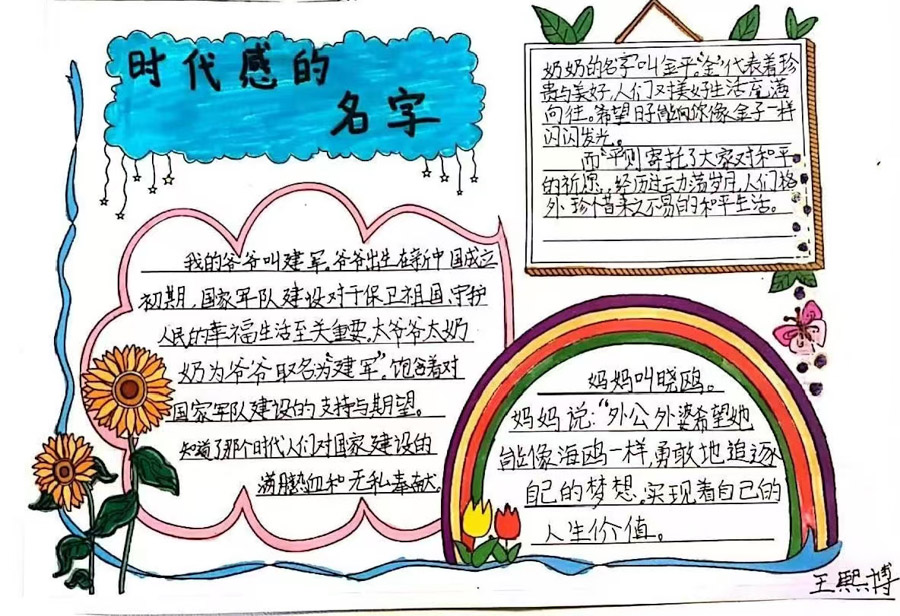 时代感的
名字
我的爷爷叫建军。爷爷出生在新中国成立
初期,国家军队建设对于保卫祖国、守护
人民的幸福生活至关重要。太爷爷太奶
奶为爷爷取名为"建军"。饱含着对
国家军队建设的支持与期望。
知道了那个时代人们对国家建设的
满腔热血和无私奉献。
奶奶的名字叫金平。"金"代表着珍
贵与美好,人们对美好生活充满
向往。希望日子能向你像金子一样
闪闪发光。
而"平"则寄托了大家对和平
的祈愿,经历过动荡岁月,人们格
外珍惜来之不易的和平生活。
妈妈叫晓鸥。
妈妈说:"外公外婆希望她
能像海鸥一样,勇敢地追逐
自己的梦想,实现着自己的
人生价值。
王熙博